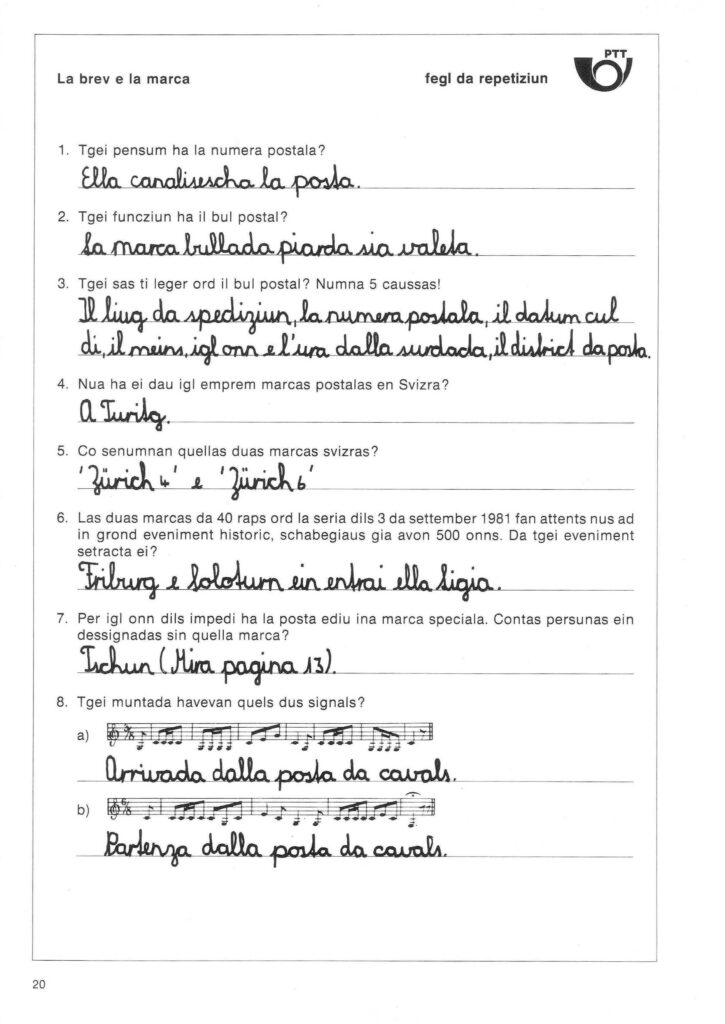 PTT
La brev e la marca fegl da repetiziun
1. Tgei pensum ha la numera postala?
Ella canalisescha la posta.
2. Tgei funcziun ha il bul postal?
La marca bullada piarda sia valeta.
3. Tgei sas ti leger ord il bul postal? Numna 5 caussas!
Il liug da spediziun, la numera postala, il datum cul
di, il meins, igl onn e l'ura dalla surdada, il district da posta.
4. Nua ha ei dau igl emprem marcas postalas en Svizra?
A Turitg.
5. Co senumnan quellas duas marcas svizras?
'Zürich 4' e 'Zürich 6'
6. Las duas marcas da 40 raps ord la seria dils 3 da settember 1981 fan attents nus ad
in grond eveniment historic, schabegiaus gia avon 500 onns. Da tgei eveniment
setracta ei?
Friburg e Soloturn ein entrai ella Ligia.
7. Per igl onn dils impedi ha la posta ediu ina marca speciala. Contas persunas ein
dessignadas sin quella marca?
Tschun (Mira pagina 13).
8. Tgei muntada havevan quels dus signals?
a)
Arrivada dalla posta da cavals.
b)
Partenza dalla posta da cavals.
20